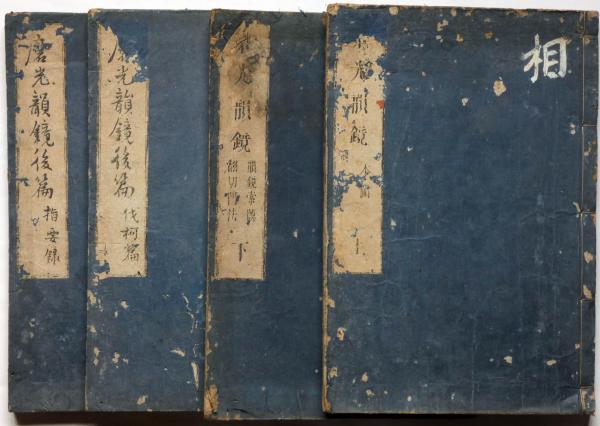 相
韻鏡
上
韻鏡
韻鏡索隱
翻切門法
下
磨光韻鏡後篇
伐柯篇
磨光韻鏡後篇
指要録